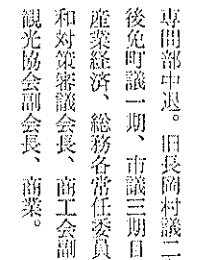 専門部中退。旧長岡村議二
後免町議一期、市議三期目
産業経済、総務各常任委員
和対策審議会長、商工会副
観光協会副会長、商業。